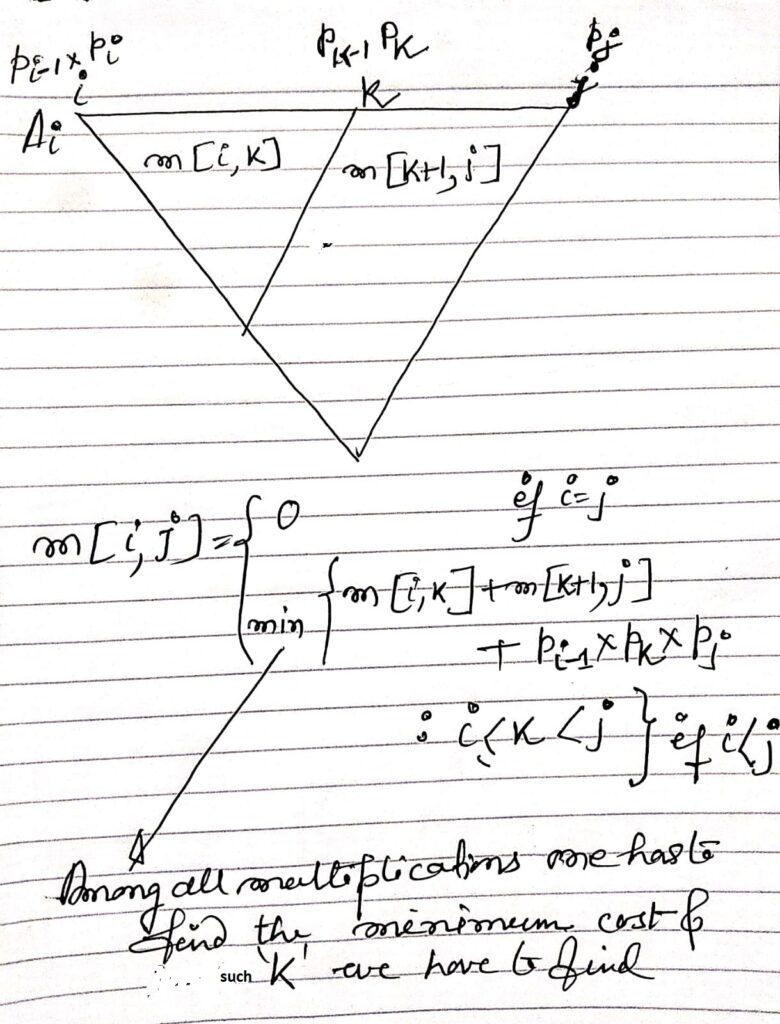 p_{i-1} × p_i
i
p_{K-1} p_K
K
p_j
j
A_i
m[i,K]
m[K+1,j]
m[i,j] = { 0 if i=j
min { m[i,K] + m[K+1,j]
+ p_{i-1} × p_K × p_j
: i ≤ K < j } if i<j
Among all multiplications one has to
find the minimum cost &
such 'K' we have to find